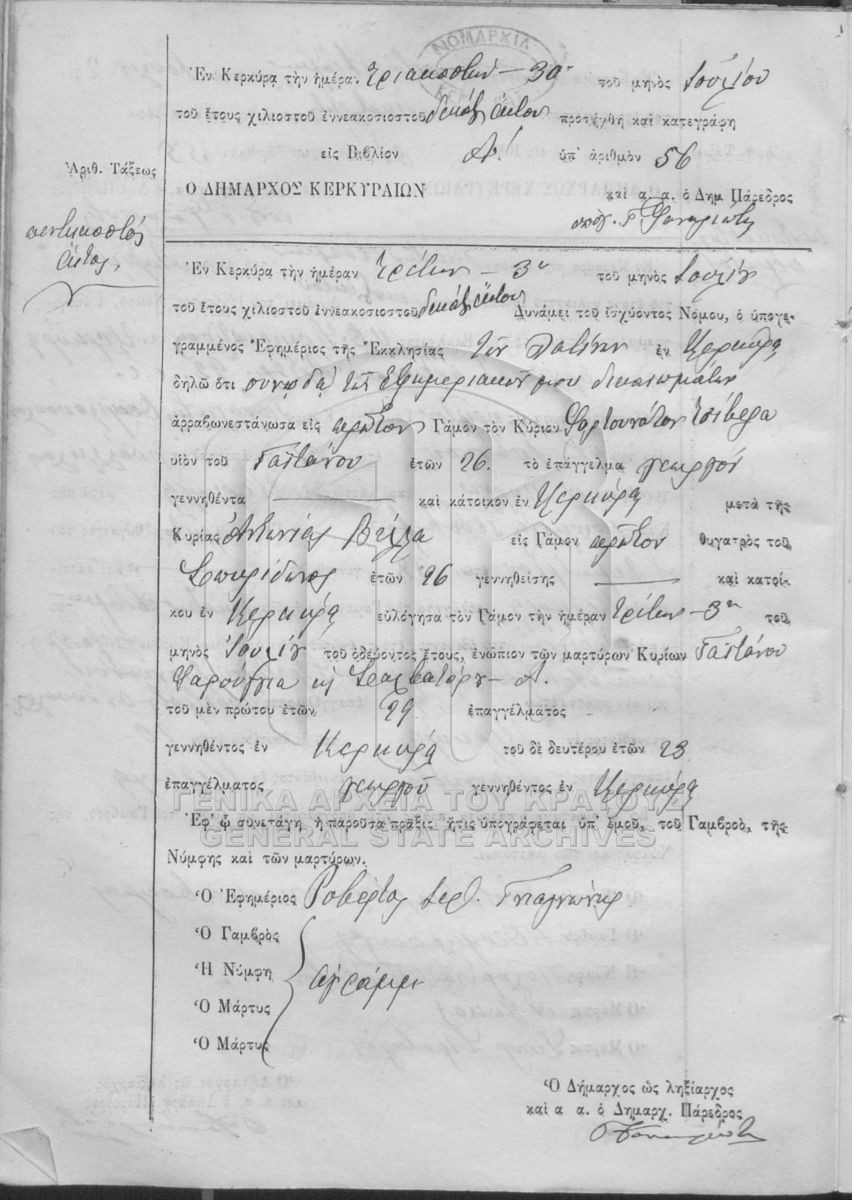 ΝΟΜΑΡΧΙΑ
Ἐν Κερκύρᾳ τὴν ἡμέραν τριακοστὴν - 30ην τοῦ μηνὸς Ἰουλίου
τοῦ ἔτους χιλιοστοῦ ἐννεακοσιοστοῦ δεκάτου ἕκτου προσήχθη καὶ κατεγράφη
εἰς Βιβλίον Α! ὑπ' ἀριθμὸν 56
Ἀριθ. Τάξεως
Ο ΔΗΜΑΡΧΟΣ ΚΕΡΚΥΡΑΙΩΝ
καὶ α. α. ὁ Δημ Πάρεδρος
πεντηκοστὸς
ἕκτος,
Ἐν Κερκύρᾳ τὴν ἡμέραν τρίτην - 3ην τοῦ μηνὸς Ἰουλίου
τοῦ ἔτους χιλιοστοῦ ἐννεακοσιοστοῦ δεκάτου ἕκτου Δυνάμει τοῦ ἰσχύοντος Νόμου, ὁ ὑπογε-
γραμμένος Ἐφημέριος τῆς Ἐκκλησίας τῶν Λατίνων ἐν Κερκύρᾳ
δηλῶ ὅτι συνῳδᾷ τῶν Ἐφημεριακῶν μου δικαιωμάτων
ἀρραβωνεστάνωσα εἰς πρῶτον Γάμον τὸν Κύριον Φορτουνάτον
υἱὸν τοῦ Γαετάνου ἐτῶν 26. τὸ ἐπάγγελμα γεωργὸν
γεννηθέντα — καὶ κάτοικον ἐν Κερκύρᾳ μετὰ τῆς
Κυρίας Ἀντωνίας Βέλλα εἰς Γάμον πρῶτον θυγατρὸς τοῦ
Σπυρίδωνος ἐτῶν 26 γεννηθείσης — καὶ κατοί-
κου ἐν Κερκύρᾳ εὐλόγησα τὸν Γάμον τὴν ἡμέραν τρίτην - 3ην τοῦ
μηνὸς Ἰουλίου τοῦ ὁδεύοντος ἔτους, ἐνώπιον τῶν μαρτύρων Κυρίων Γαετάνου
Φαρούγγια κ Σαλβατόρου
τοῦ μὲν πρώτου ἐτῶν 29 ἐπαγγέλματος -
γεννηθέντος ἐν Κερκύρᾳ τοῦ δὲ δευτέρου ἐτῶν 23
ἐπαγγέλματος γεωργοῦ γεννηθέντος ἐν Κερκύρᾳ
ΓΕΝΙΚΑ ΑΡΧΕΙΑ ΤΟΥ ΚΡΑΤΟΥΣ
Ἐφ' ᾧ συνετάγη ἡ παροῦσα πρᾶξις ἥτις ὑπογράφεται ὑπ' ἐμοῦ, τοῦ Γαμβροῦ, τῆς
GENERAL STATE ARCHIVES
Νύμφης καὶ τῶν μαρτύρων.
Ὁ Ἐφημέριος Ροβέρτος
Ὁ Γαμβρὸς
Ἡ Νύμφη ἀγράμμ
Ὁ Μάρτυς
Ὁ Μάρτυς
Ὁ Δήμαρχος ὡς ληξίαρχος
καὶ α α. ὁ Δημαρχ. Πάρεδρος